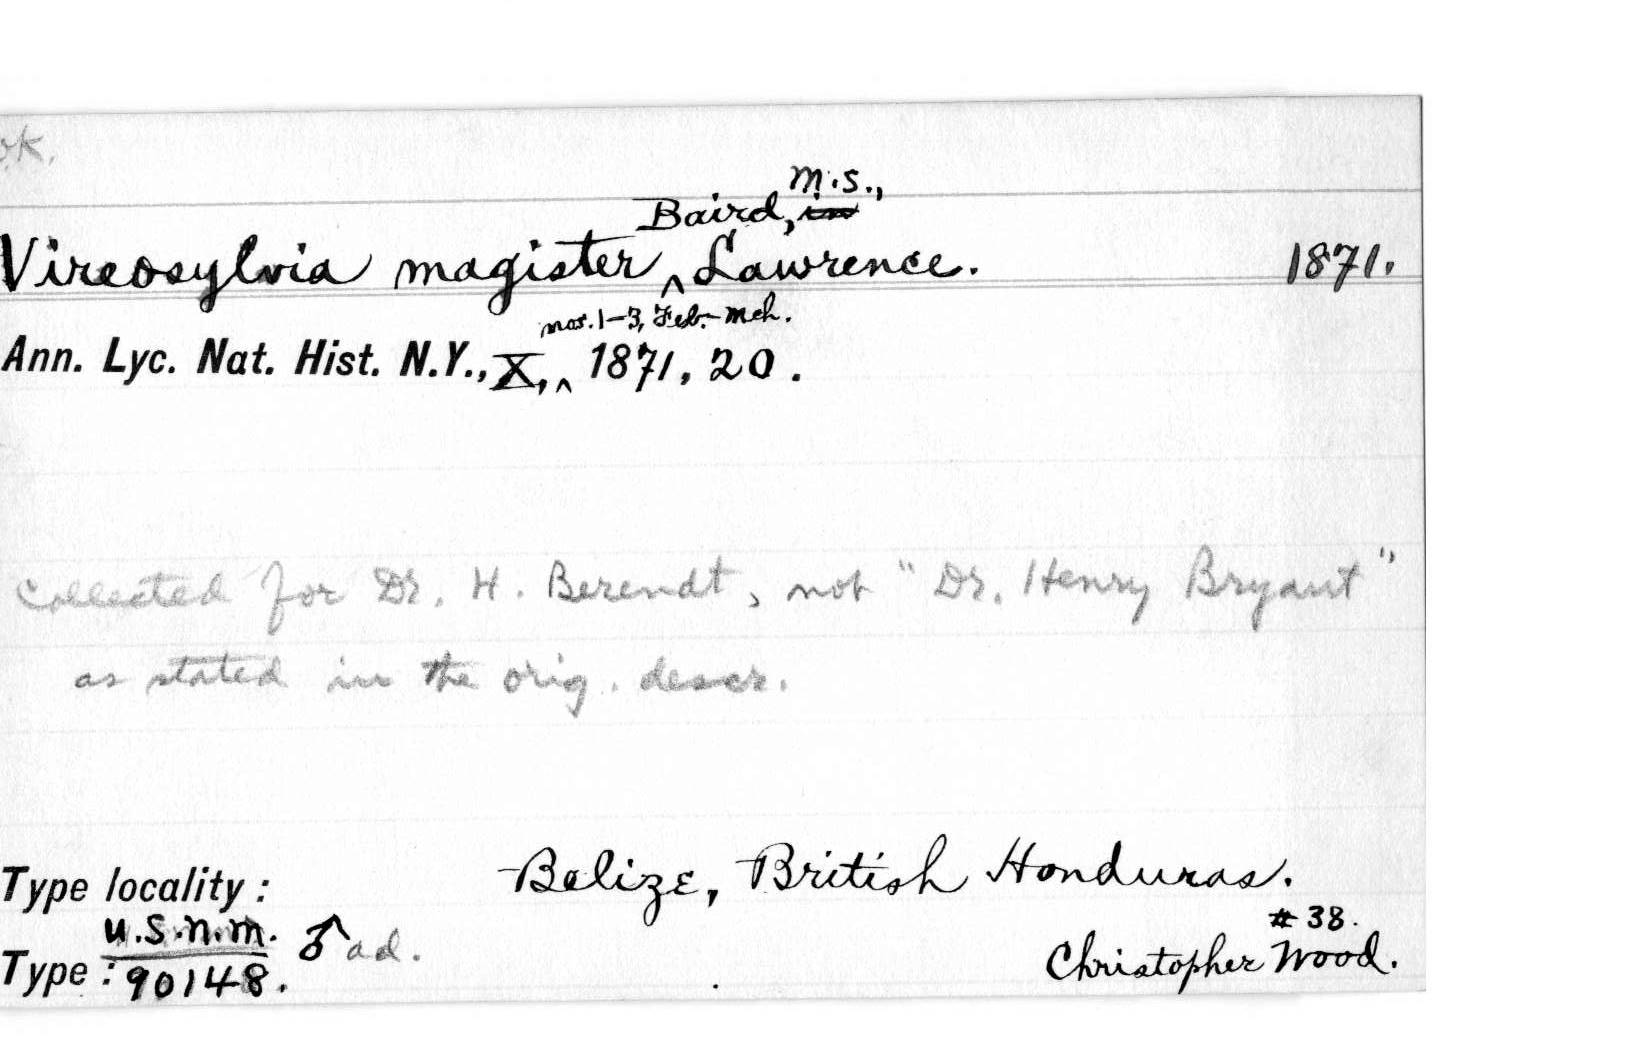 ok.
m.s.,
Baird, in
Vireosylvia magister ^ Lawrence. 1871.
nos. 1-3, Feb.-Mch.
Ann. Lyc. Nat. Hist. N.Y., X, ^ 1871, 20.
Collected for Dr. H. Berendt, not "Dr. Henry Bryant"
as stated in the orig. descr.
Type locality: Belize, British Honduras.
U.S.N.M. ♂ ad. #38.
Type: 90148. Christopher Wood.